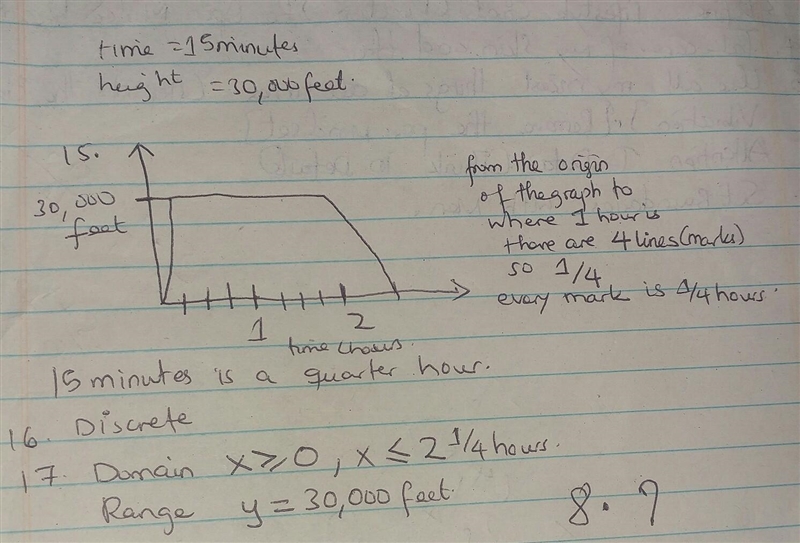 time = 15 minutes
height = 30,000 feet.
15.
30,000
feet
from the origin
of the graph to
where 1 hour is
there are 4 lines (marks)
so 1/4
every mark is 1/4 hours.
1 2
time (hours.
15 minutes is a quarter hour.
16. Discrete
17. Domain x ≥ 0, x ≤ 2 1/4 hours.
Range y = 30,000 feet.
8. 9